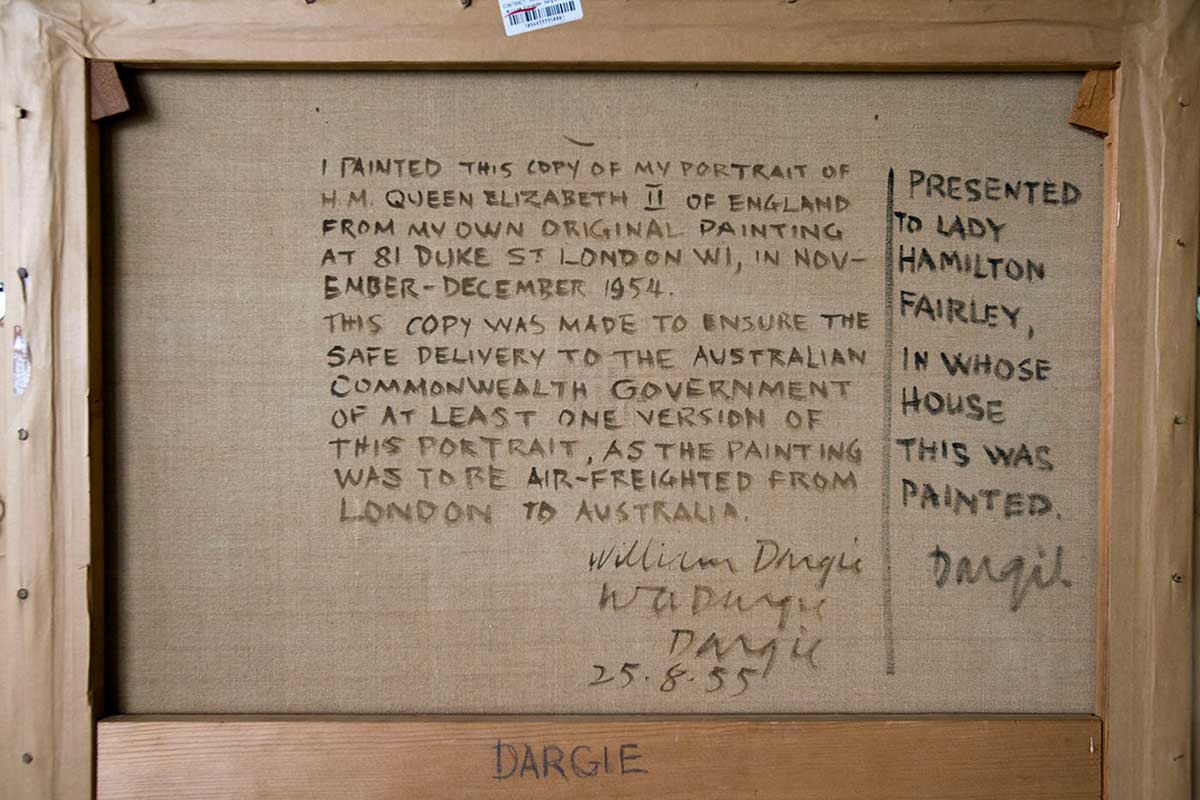 I PAINTED THIS COPY OF MY PORTRAIT OF
H.M. QUEEN ELIZABETH II OF ENGLAND
FROM MY OWN ORIGINAL PAINTING
AT 81 DUKE ST LONDON W1, IN NOV-
EMBER-DECEMBER 1954.
THIS COPY WAS MADE TO ENSURE THE
SAFE DELIVERY TO THE AUSTRALIAN
COMMONWEALTH GOVERNMENT
OF AT LEAST ONE VERSION OF
THIS PORTRAIT, AS THE PAINTING
WAS TO BE AIR-FREIGHTED FROM
LONDON TO AUSTRALIA.
William Dargie
WA Dargie
Dargie
25.8.55
PRESENTED
TO LADY
HAMILTON
FAIRLEY,
IN WHOSE
HOUSE
THIS WAS
PAINTED.
Dargie
DARGIE